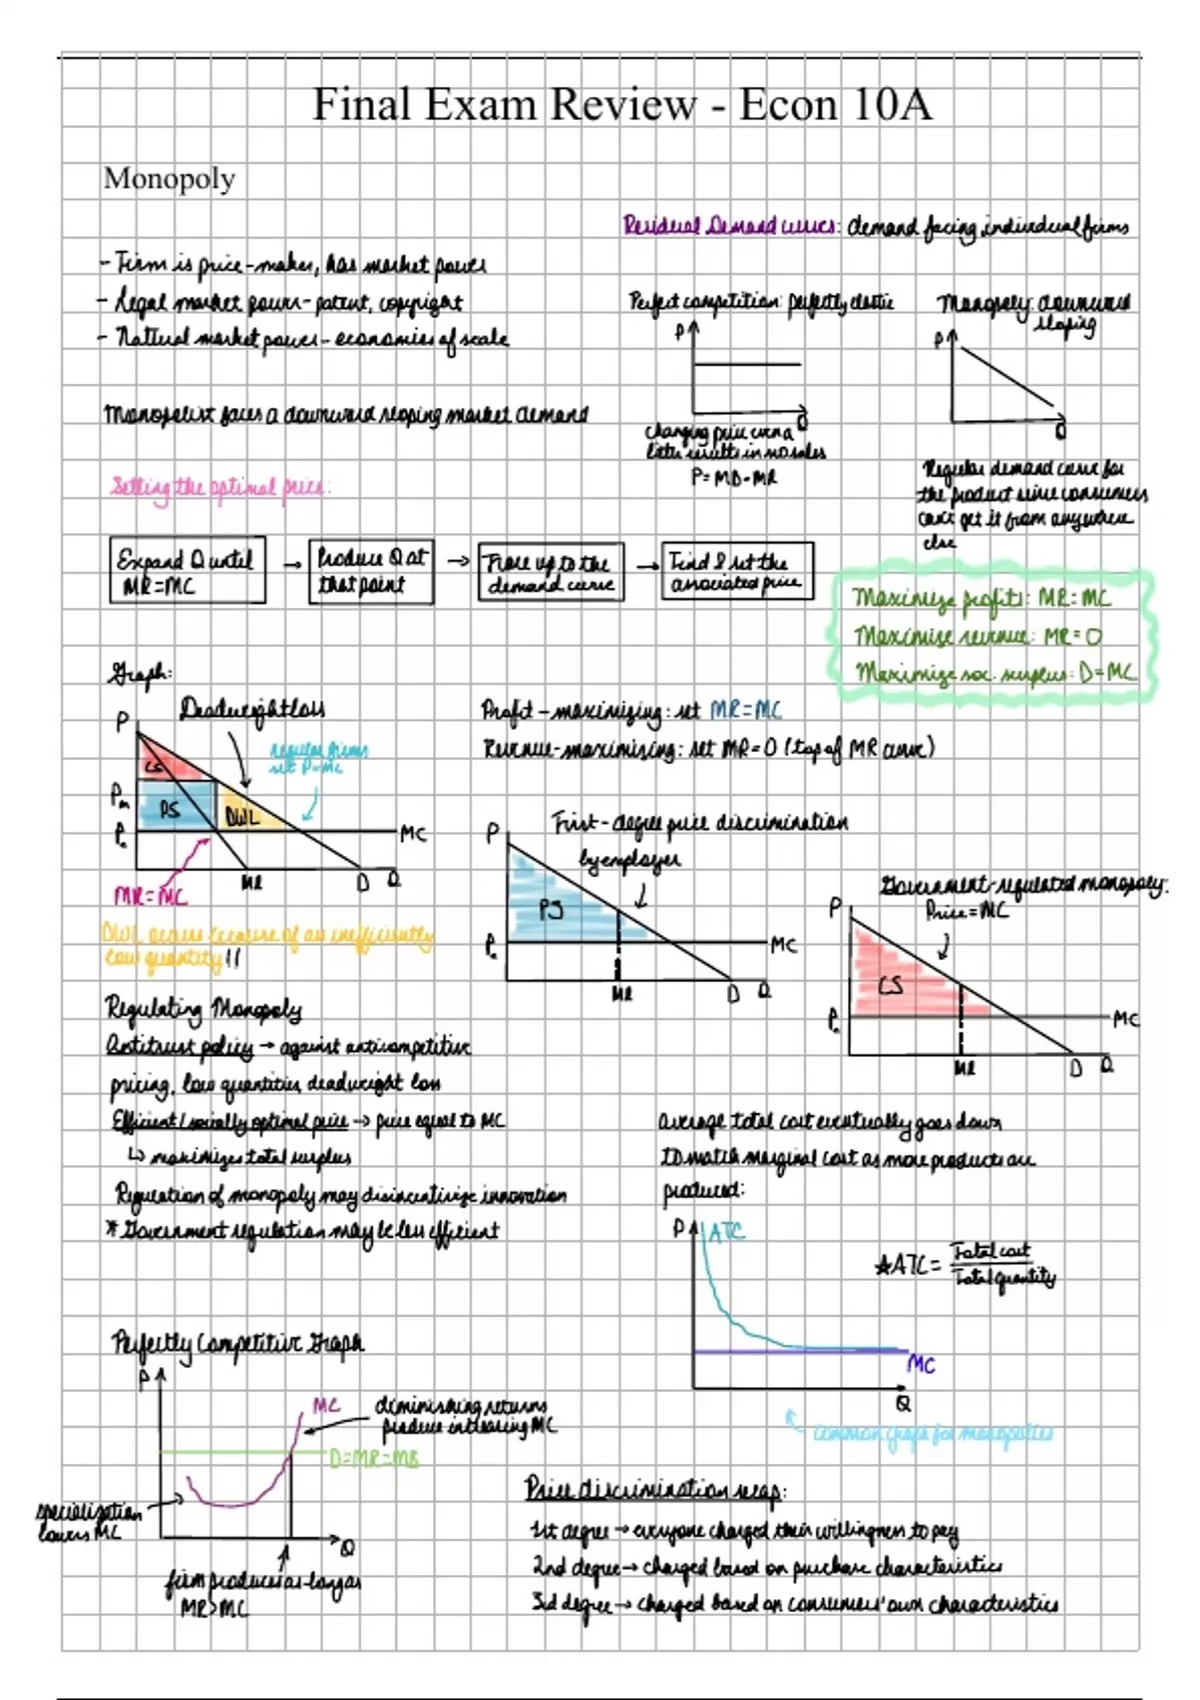 Final Exam Review - Econ 10A
Monopoly
- Firm is price-maker, has market power
- Legal market power - patent, copyright
- Natural market power - economies of scale
Monopolist faces a downward sloping market demand
Residual Demand curves: demand facing individual firms
Perfect competition: perfectly elastic
P
Q
changing price even a
little results in no sales
P=MB=MR
Monopoly: downward
sloping
P
Q
Regular demand curve for
the product since consumers
can't get it from anywhere
else
Setting the optimal price:
Expand Q until
MR=MC
→
Produce Q at
that point
→
Trace up to the
demand curve
→
Find & set the
associated price
Maximize profits: MR=MC
Maximize revenue: MR=0
Maximize soc. surplus: D=MC
Graph:
Deadweight loss
P
regular firms
set P=MC
CS
Pm
PS
DWL
MC
MR
D
Q
MR=MC
DWL occurs because of an inefficiently
low quantity!!
Profit-maximizing: set MR=MC
Revenue-maximizing: set MR=0 (top of MR curve)
First-degree price discrimination
by employer
P
PS
MC
MR
D
Q
Government-regulated monopoly:
Price=MC
P
CS
MC
MR
D
Q
Regulating Monopoly
Antitrust policy → against anticompetitive
pricing, low quantities, deadweight loss
Efficient/socially optimal price → price equal to MC
↳ maximizes total surplus
Regulation of monopoly may disincentivize innovation
* Government regulation may be less efficient
Average total cost eventually goes down
to match marginal cost as more products are
produced:
P
ATC
MC
Q
*ATC = Total cost
Total quantity
common graph for monopolies
Perfectly Competitive Graph
P
MC
diminishing returns
produce increasing MC
D=MR=MB
specialization
lowers MC
Q
firm produces as long as
MR>MC
Price discrimination recap:
1st degree → everyone charged their willingness to pay
2nd degree → charged based on purchase characteristics
3rd degree → charged based on consumers' own characteristics